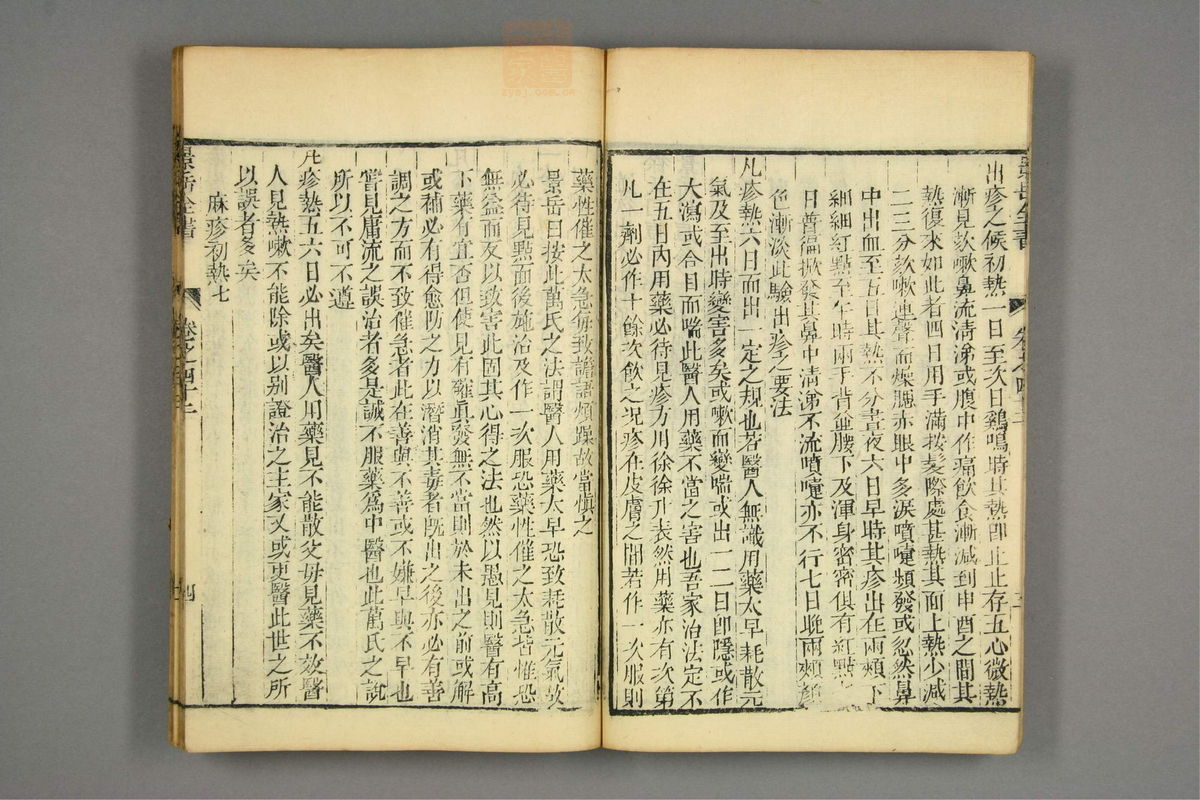 出疹之候初熱一日至次日雞鳴時其熱即止止存五心微熱
漸見欬嗽鼻流清涕或腹中作痛飲食漸減到申酉之間其
熱復來如此者四日用手滿按髮際處甚熱其面上熱少減
二三分欬嗽連聲面燥腮赤眼中多淚噴嚏頻發或忽然鼻
中出血至五日其熱不分晝夜六日早時其疹出在兩頰下
細細紅點至午時兩手背並腰下及渾身密密俱有紅點
日普徧掀發其鼻中清涕不流噴嚏亦不行七日晚兩頰顏
色漸淡此驗出疹之要法
凡疹熱六日而出一定之規也若醫人無識用藥太早耗散元
氣及至出時變害多矣或嗽而變喘或出一二日即隱或作
大瀉或合目而喘此醫人用藥不當之害也吾家治法定不
在五日內用藥必待見疹方用徐徐升表然用藥亦有次第
凡一劑必作十餘次飲之況疹在皮膚之間若作一次服則
藥性催之太急每致譫語煩躁故當慎之
景岳曰按此萬氏之法謂醫人用藥太早恐致耗散元氣故
必待見點而後施治及作一次服恐藥性催之太急皆惟恐
無益而反以致害此固其心得之法也然以愚見則醫有高
下藥有宜否但使見有確眞發無不當則於未出之前或解
或補必有得愈防之力以潛消其毒者旣出之後亦必有善
調之方而不致催急者此在善與不善或不嫌早與不早也
嘗見庸流之誤治者多是誠不服藥爲中醫也此萬氏之說
所以不可不遵
凡疹熱五六日必出矣醫人用藥見不能散父母見藥不效醫
人見熱嗽不能除或以別證治之主家又或更醫此世之所
以誤者多矣
麻疹初熱七
景岳全書
卷之四十三
四